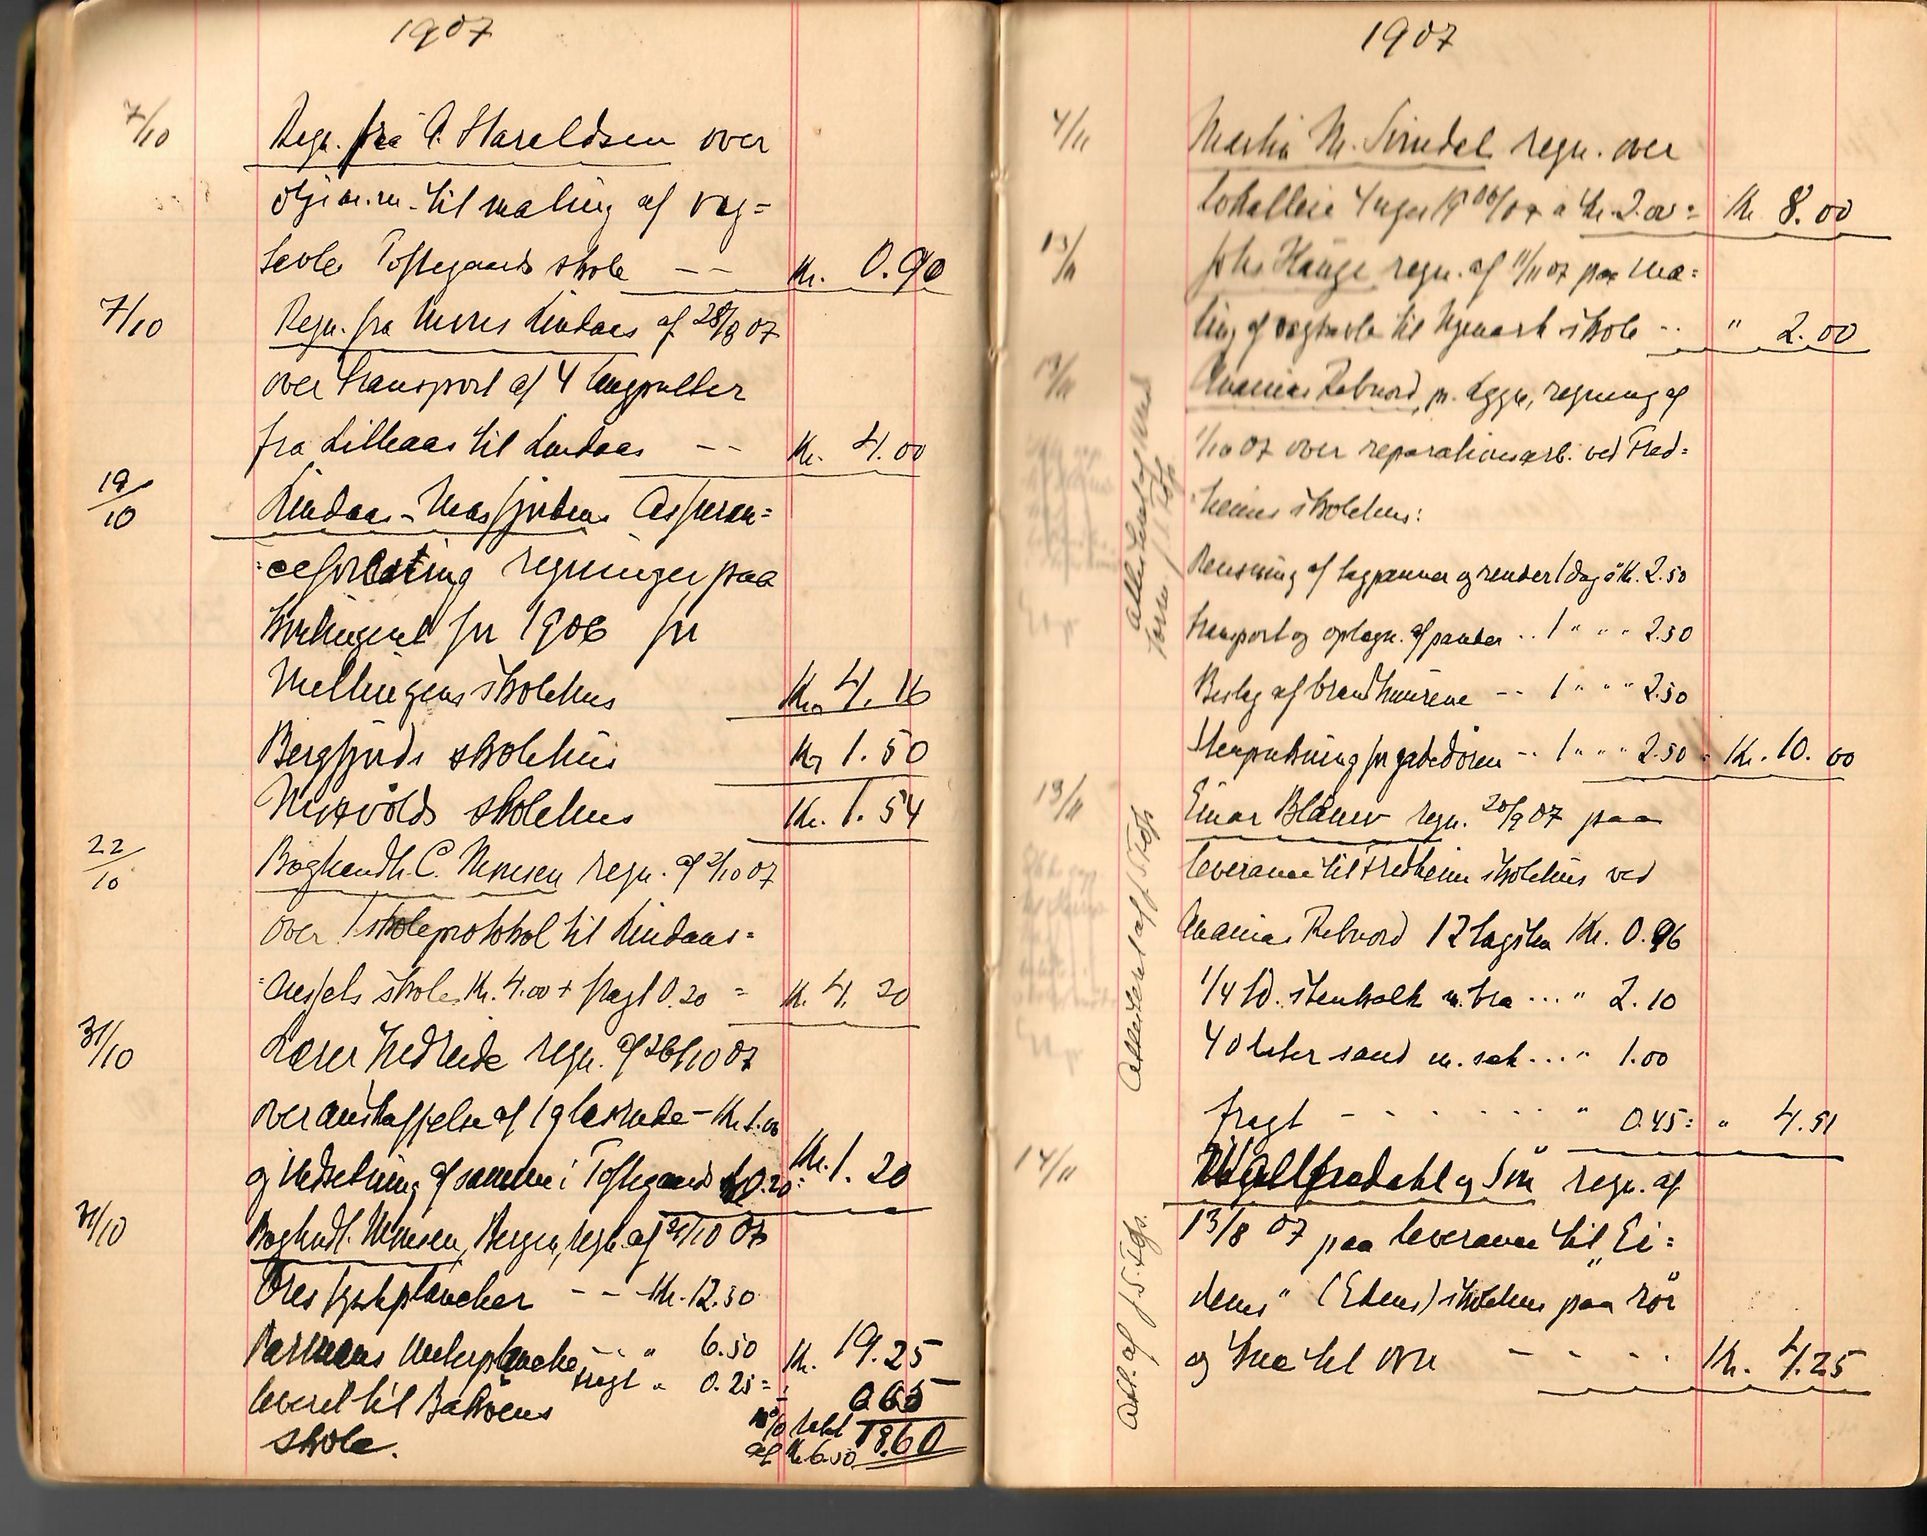 1907
7/10 Regn. fra A. Haraldsen over
olje m.m. til maling af væg=
tavle Toftegaards skole -- Kr. 0.90
7/10 Regn. fra Mons Lindaas af 28/9 07
over transport af 4 langpulter
fra Lilleaas til Lindaas -- Kr. 4.00
19/10 Lindaas-Masfjordens Assuran=
=ceforening regninger paa
kontingent for 1906 for
Mellingens skolehus Kr. 4.16
Bergfjords skolehus Kr 1.50
skolehus Kr. 1.54
22/10 Boghandl. C. Monsen regn. af 2/10 07
over 1 skoleprotokol til Lindaas=
skole Kr. 4.00 + fragt 0.20 = Kr. 4.20
31/10 Lærer Nedreide regn. af 26/10 07
over anskaffelse af 1 glasrude - Kr. 1.00
og indsetning af samme i Toftegaards 0.20= Kr. 1.20
31/10 Boghndl. Monsen, Bergen, regn. af 21/10 07
-- Kr. 12.50
6.50 Kr. 19.25
fragt " 0.25 =
leveret til Bakøens 0.65
skole. 10% rabt af Kr 6.50 18.60
1907
4/11 Martin M. Svindal regn. over
lokalleie 4 uger 1906/07 a Kr. 2.00 = Kr. 8.00
13/11 Johs Hauge regn. af 11/11 07 paa ma=
ling af vægtavle til Nymark skole -- " 2.00
13/11 Ananias Rebnord, pr. Lygre, regning af
1/10 07 over reparationsarb. ved Fred=
=heims skolehus:
Rensning af tagpanner og render 1 dag à Kr. 2.50
transport og oplægn. af pander .. 1 " " " 2.50
Beslag af brandmurene -- 1 " " " 2.50
for gadedøren -- 1 " " " 2.50 = Kr. 10.00
13/11 Einar Blaauw regn. 20/9 07 paa
leverance til Fredheim skolehus ved
Ananias Rebnord 12 tagsten Kr. 0.96
1/4 td. stenkalk m. træ ... " 2.10
40 liter sand m. sæk ... " 1.00
fragt - - - - - - " 0.45 = " 4.51
14/11 og Søn regn. af
13/8 07 paa leverance til "Ei=
dems" (Edems) skolehus paa rør
og kne til ovn - - - - Kr. 4.25
Attesteret af
Attesteret af f. S. Fofs.
Att. af f. S. Fofs.